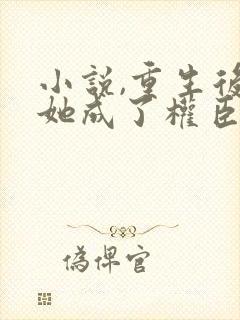 小說,重生後
她成了權臣
偽俾官